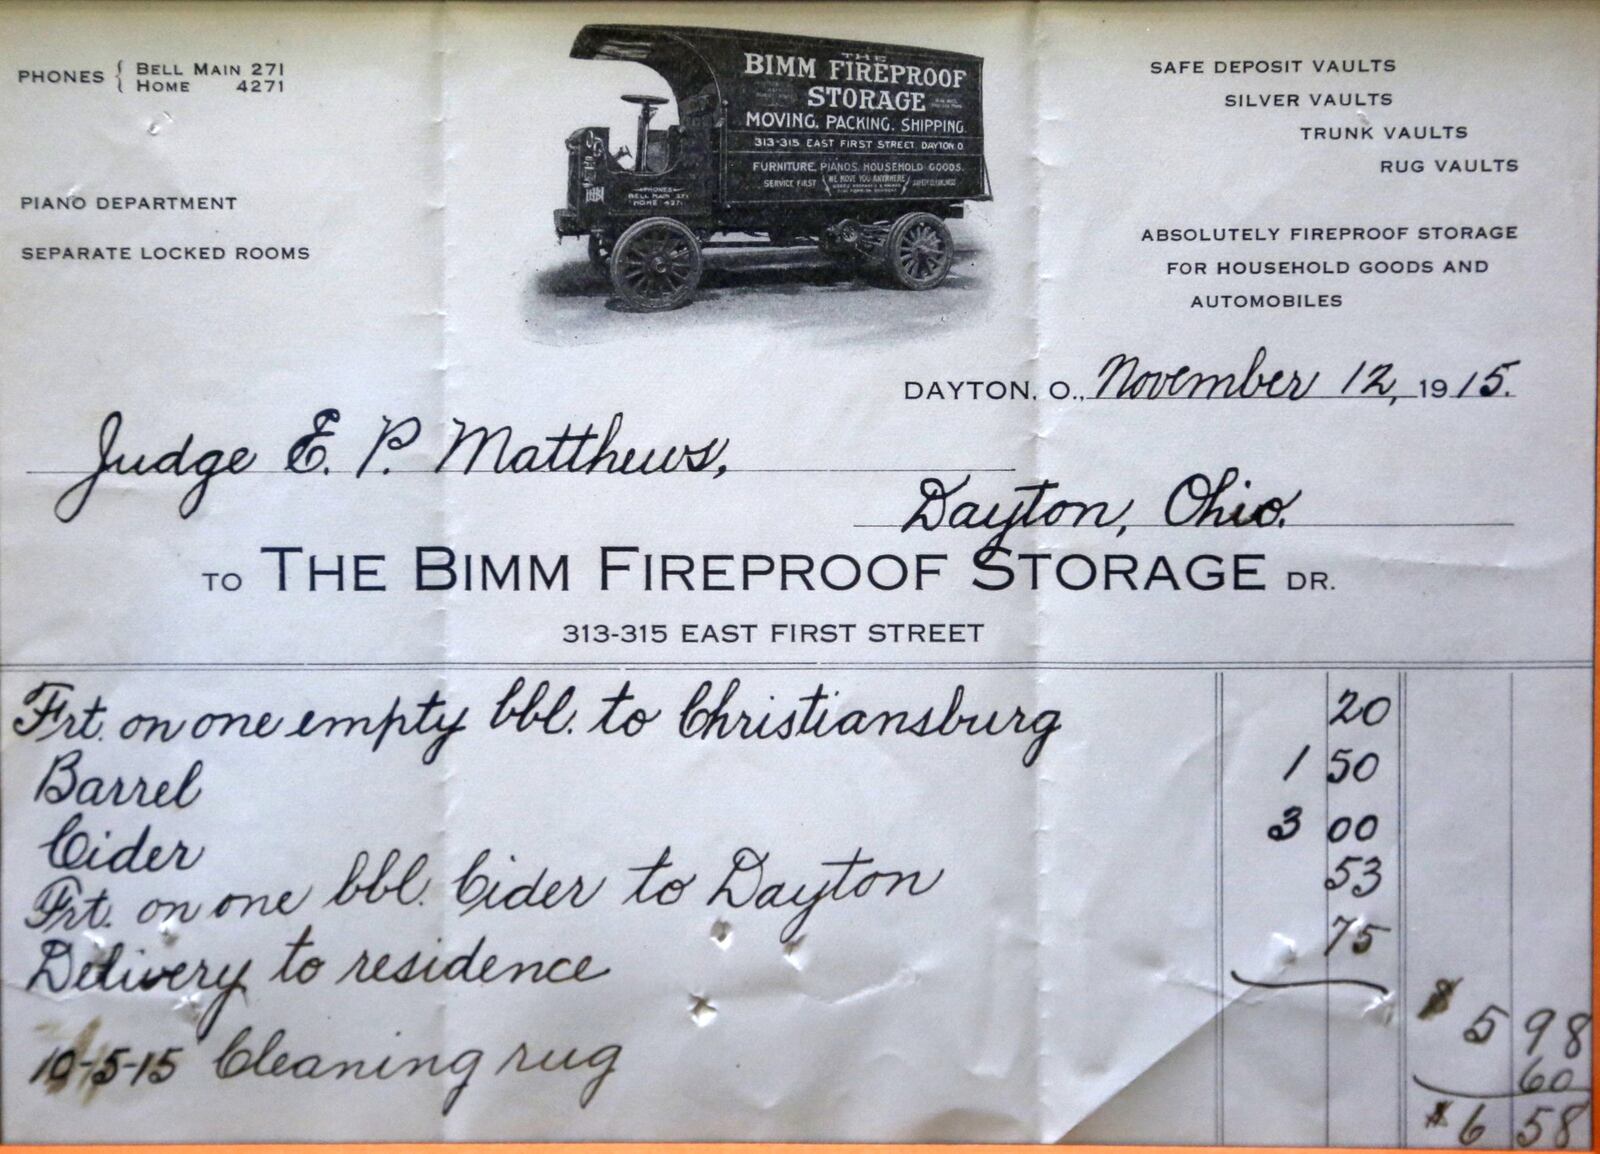 PHONES { BELL MAIN 271
HOME 4271
PIANO DEPARTMENT
SEPARATE LOCKED ROOMS
THE
BIMM FIREPROOF
STORAGE
MOVING, PACKING, SHIPPING.
313-315 EAST FIRST STREET, DAYTON O.
FURNITURE, PIANOS, HOUSEHOLD GOODS.
SERVICE FIRST WE MOVE YOU ANYWHERE
PHONES
BELL MAIN 271
HOME 4271
SAFE DEPOSIT VAULTS
SILVER VAULTS
TRUNK VAULTS
RUG VAULTS
ABSOLUTELY FIREPROOF STORAGE
FOR HOUSEHOLD GOODS AND
AUTOMOBILES
DAYTON, O., November 12, 1915.
Judge E. P. Matthews,
Dayton, Ohio.
TO THE BIMM FIREPROOF STORAGE DR.
313-315 EAST FIRST STREET
Frt. on one empty bbl. to Christiansburg 20
Barrel 1 50
Cider 3 00
Frt. on one bbl. Cider to Dayton 53
Delivery to residence 75
$ 5 98
10-5-15 Cleaning rug 60
$ 6 58